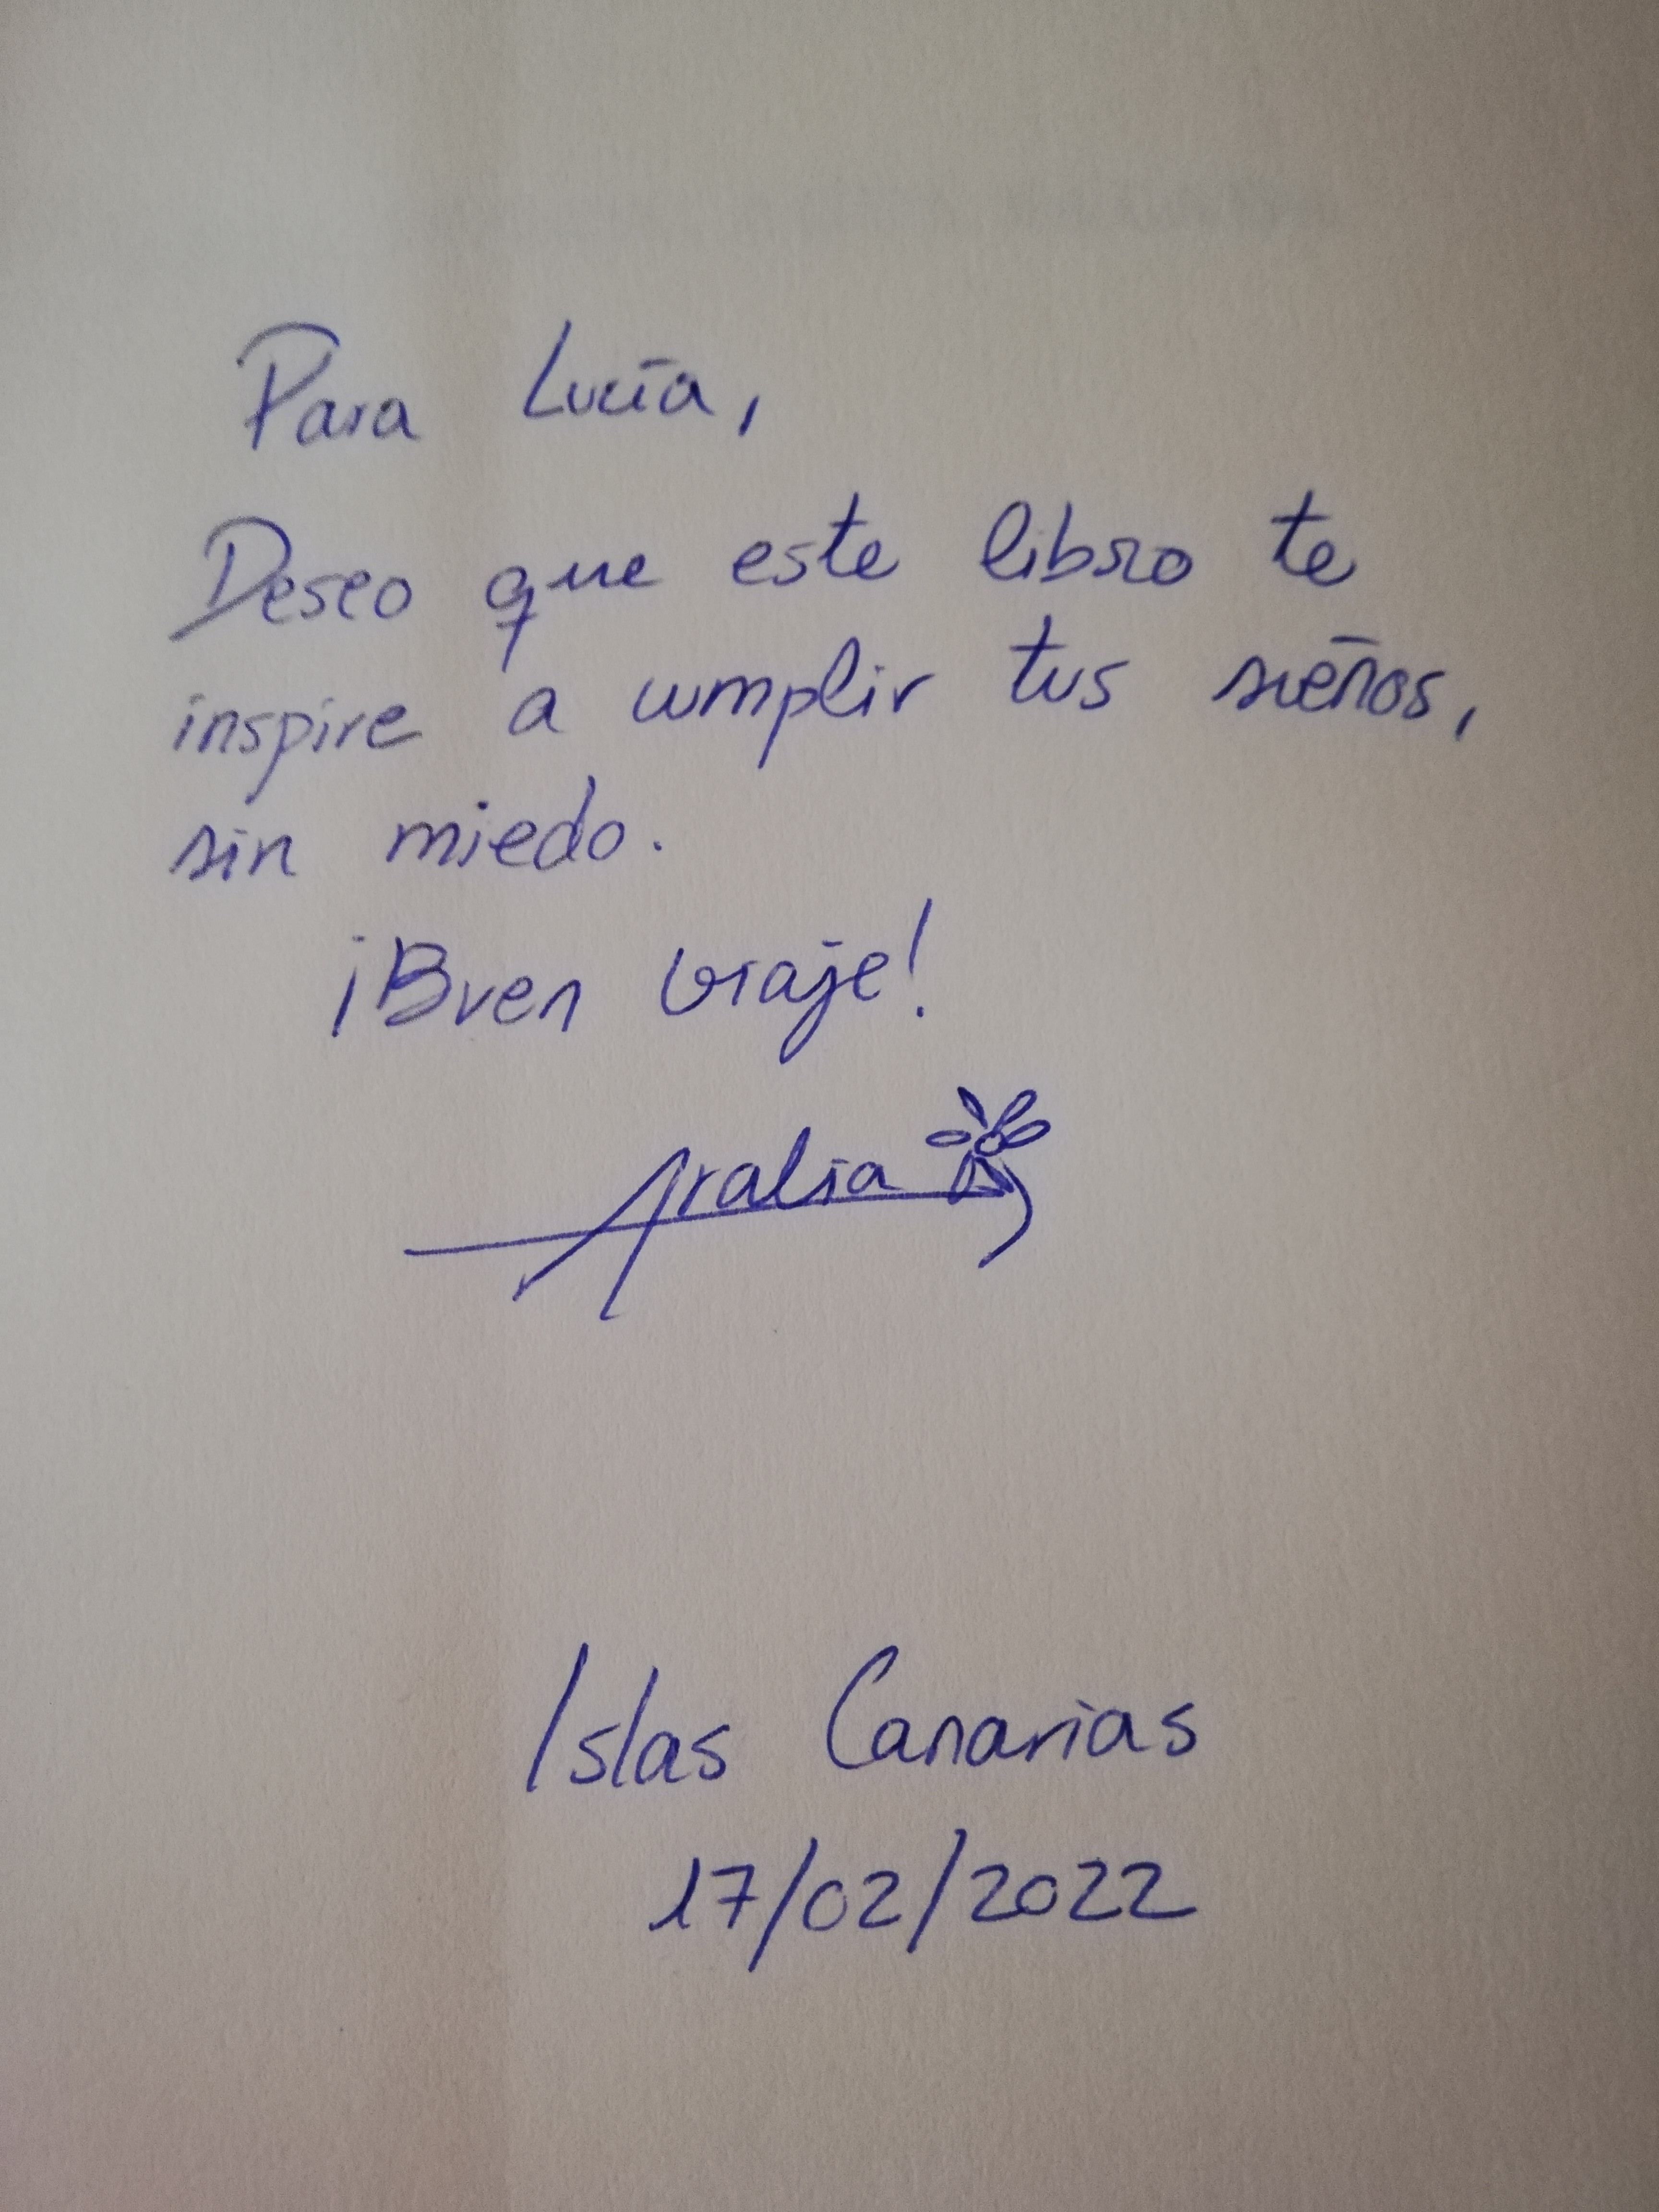 Para Lucía,
Deseo que este libro te
inspire a cumplir tus sueños,
sin miedo.
¡Buen viaje!
Aralia
Islas Canarias
17/02/2022